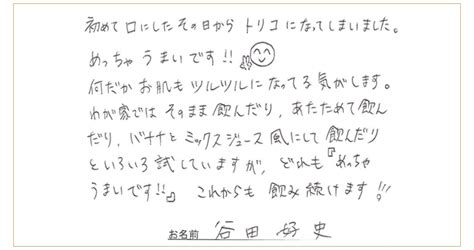 初めて口にしたその日からトリコになってしまいました。
めっちゃうまいです!!
何だかお肌もツルツルになってる気がします。
わが家ではそのまま飲んだり、あたためて飲ん
だり、バナナとミックスジュース風にして飲んだり
といろいろ試していますが、どれも『めっちゃ
うまいです!!』 これからも飲み続けます!!!
お名前 谷田 好史